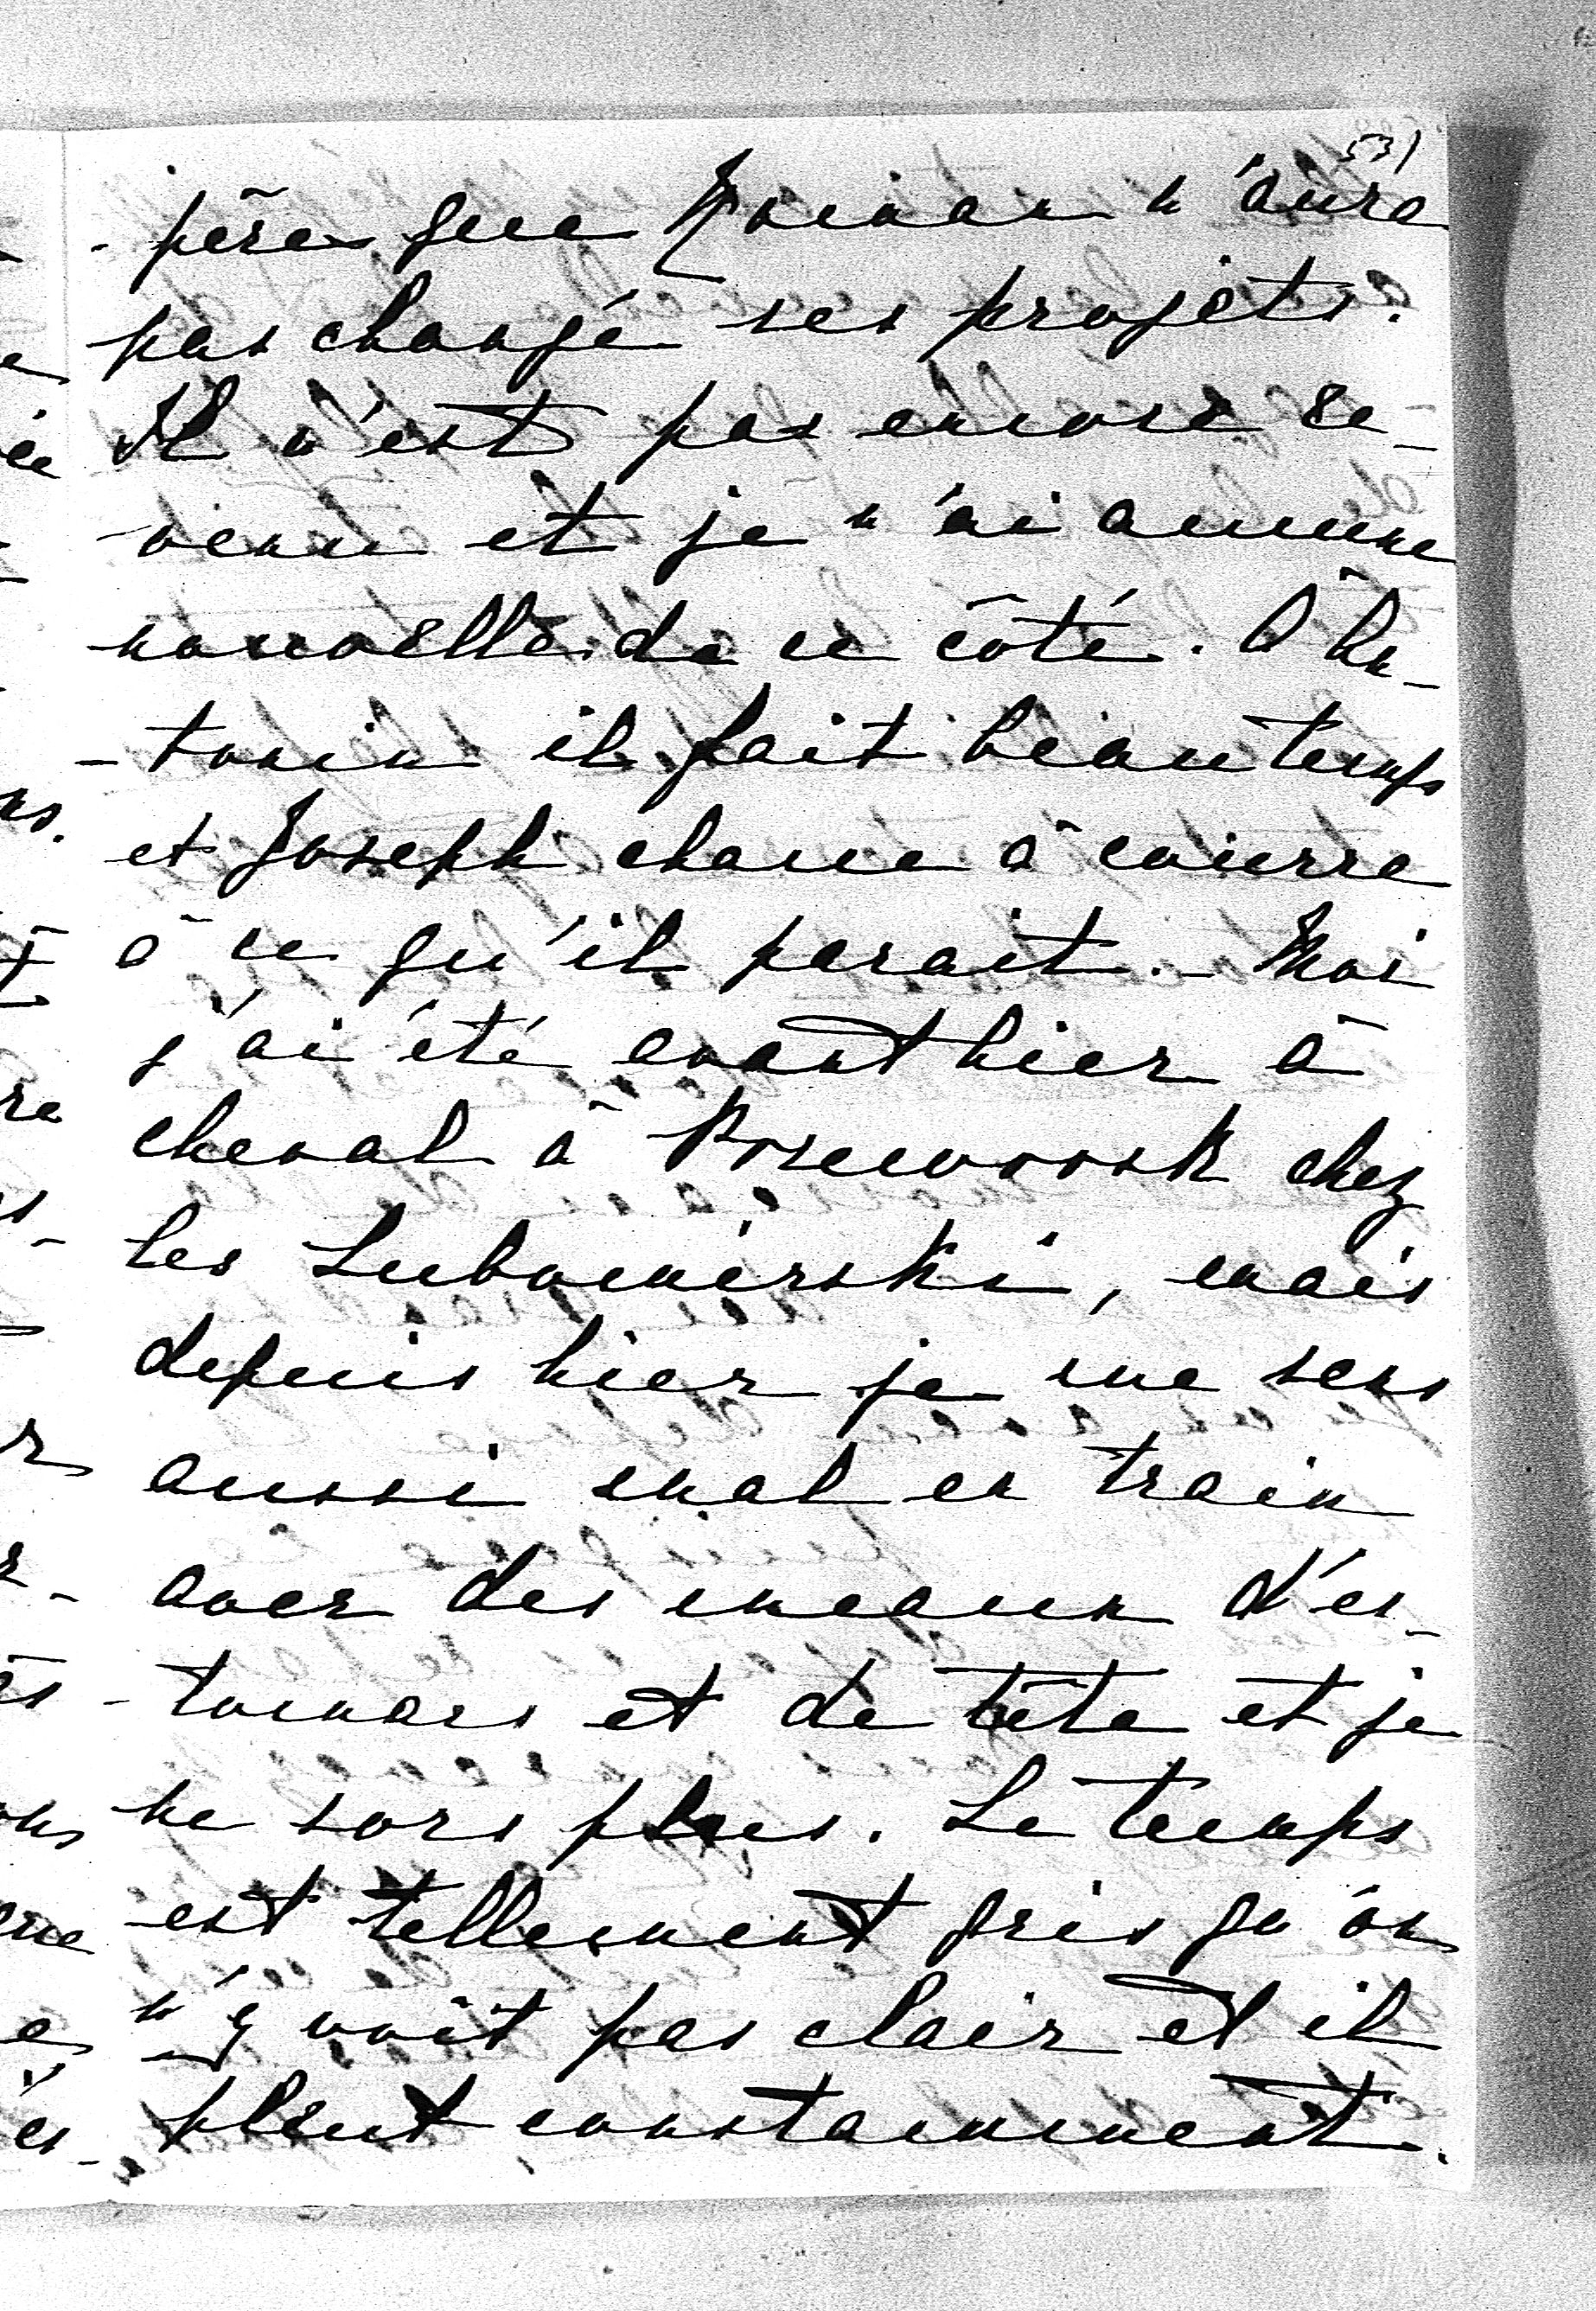 53)
- père que Roman n'aura
pas changé ses projets.
Il n'est pas encore re-
venu et je n'ai aucune
nouvelle de ce côté. A An-
- tonin il fait beau temps
et Joseph chasse à courre
à ce qu'il parait. - Moi
j'ai été avant hier à
cheval à Przeworsk chez
les Lubomirski, mais
depuis hier je me sens
aussi mal en train
avec des meaux d'es-
- tomacs et de tête et je
ne sors plus. Le temps
est tellement gris qu'on
n'y voit pas clair et il
pleut constamment.